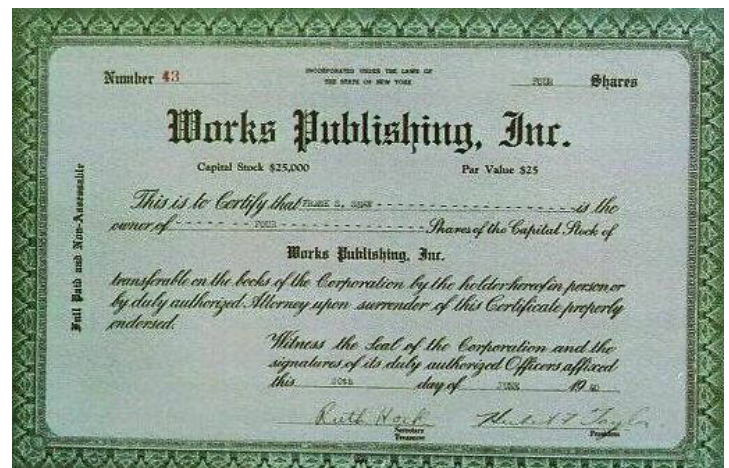 Number 43
INCORPORATED UNDER THE LAWS OF
THE STATE OF NEW YORK
FOUR Shares
Works Publishing, Inc.
Capital Stock $25,000
Par Value $25
Full Paid and Non-Assessable
This is to Certify that FRANK S. is the
owner of FOUR Shares of the Capital Stock of
Works Publishing, Inc.
transferable on the books of the Corporation by the holder hereof in person or
by duly authorized Attorney upon surrender of this Certificate properly
endorsed.
Witness the Seal of the Corporation and the
signatures of its duly authorized Officers affixed
this 20th day of JUNE 19 40
Ruth Hock
Secretary
Treasurer
President